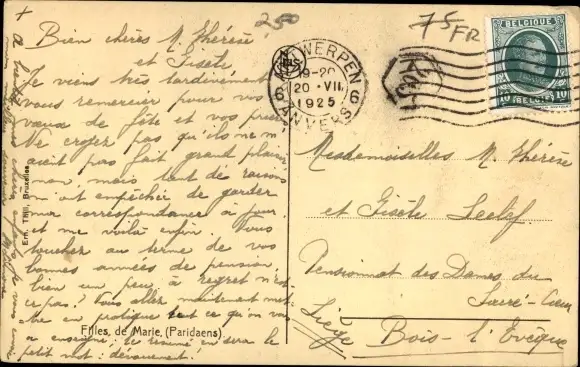 + 250 75 FR
Bien chères M. Thérèse
et Gisèle
Je viens très tardivement
vous remercier pour vos
vœux de fête et vos prières
Ne croyez pas qu'ils ne m'
aient pas fait grand plaisir
non, mais tant de raisons
m'ont empêcher de garder
ma correspondance à jour
et me voilà enfin. Vous
touchez au terme de vos
bonnes années de pension,
bien un peu à regret n'est
ce pas? Vous allez maintenant met-
tre en pratique tout ce qu'on vous
a enseigné; le résumé en sera le
petit mot: dévouement!
Ern. Thill, Bruxelles
Filles, de Marie, (Paridaens)
ANTWERPEN
19-20
20 · VII
1925
6 ANVERS 6
BELGIQUE
10 BELGIË 10
Mesdemoiselles M. Thérèse
et Gisèle Leclef
Pensionnat des Dames du
Sacré-Cœur
Bois-l'Evêque
Liège